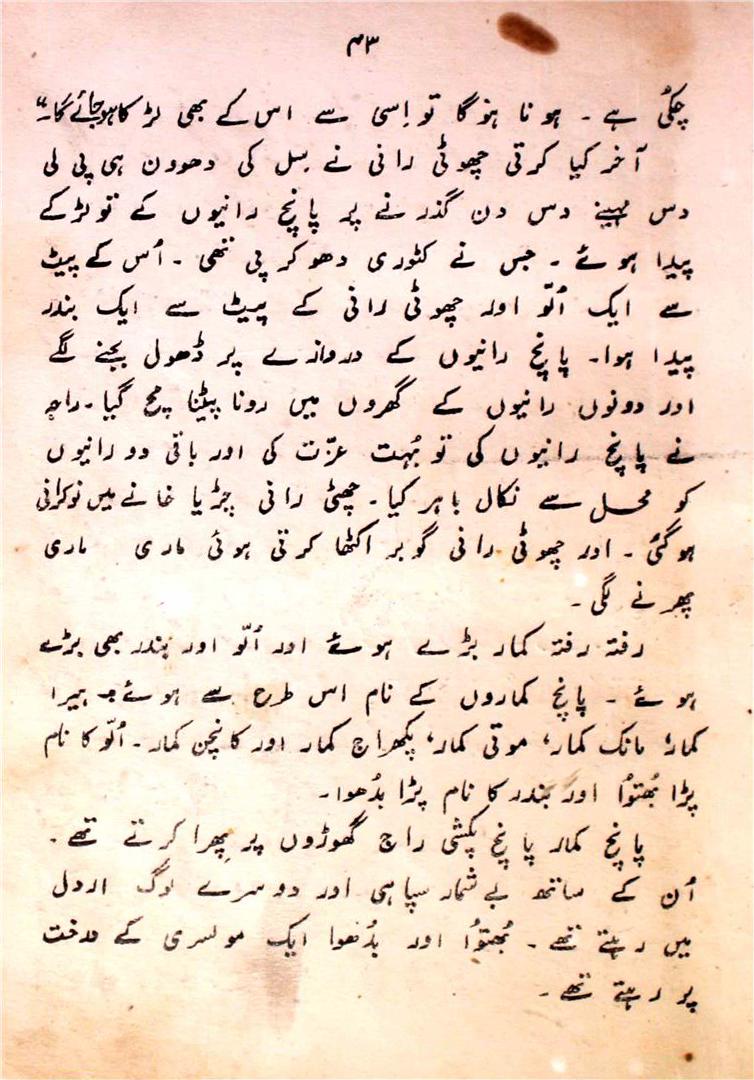 ۴۳
چکیُ ہے ۔ ہونا ہوگا تو اِسی سے اس کے بھی لڑکا ہو جائے گا۔"
آخر کیا کرتی چھوٹی رانی نے سِل کی دھوون ہی پی لی
دس مہینے دس دن گذرنے پر پانچ رانیوں کے تو لڑکے
پیدا ہوئے ۔ جس نے کٹوری دھو کر پی تھی ۔ اُس کے پیٹ
سے ایک اُلّو اور چھوٹی رانی کے پیٹ سے ایک بندر
پیدا ہوا۔ پانچ رانیوں کے دروازے پر ڈھول بجنے لگے
اور دونوں رانیوں کے گھروں میں رونا پیٹنا مچ گیا۔ راجہ
نے پانچ رانیوں کی تو بُہت عزّت کی اور باقی دو رانیوں
کو محل سے نکال باہر کیا۔ چھٹی رانی چڑیا خانے میں نوکرانی
ہوگئی ۔ اور چھوٹی رانی گوبر اکٹھا کرتی ہوئی ماری ماری
پھرنے لگی ۔
رفتہ رفتہ کمار بڑے ہوئے اور اُلّو اور بندر بھی بڑے
ہوئے ۔ پانچ کماروں کے نام اس طرح سے ہوئے :۔ ہیرا
کمار، مانک کمار، موتی کمار، پکھراج کمار اور کانچن کمار۔ اُلّو کا نام
پڑا بُھتوُا اور بندر کا نام پڑا بدُھوا۔
پانچ کمار پانچ پکشی راج گھوڑوں پر پِھرا کرتے تھے ۔
اُن کے ساتھ بےشمار سپاہی اور دوسرے لوگ اردل
میں رہتے تھے ۔ بُھتوُا اور بدُھوا ایک مولسری کے درخت
پر رہتے تھے ۔